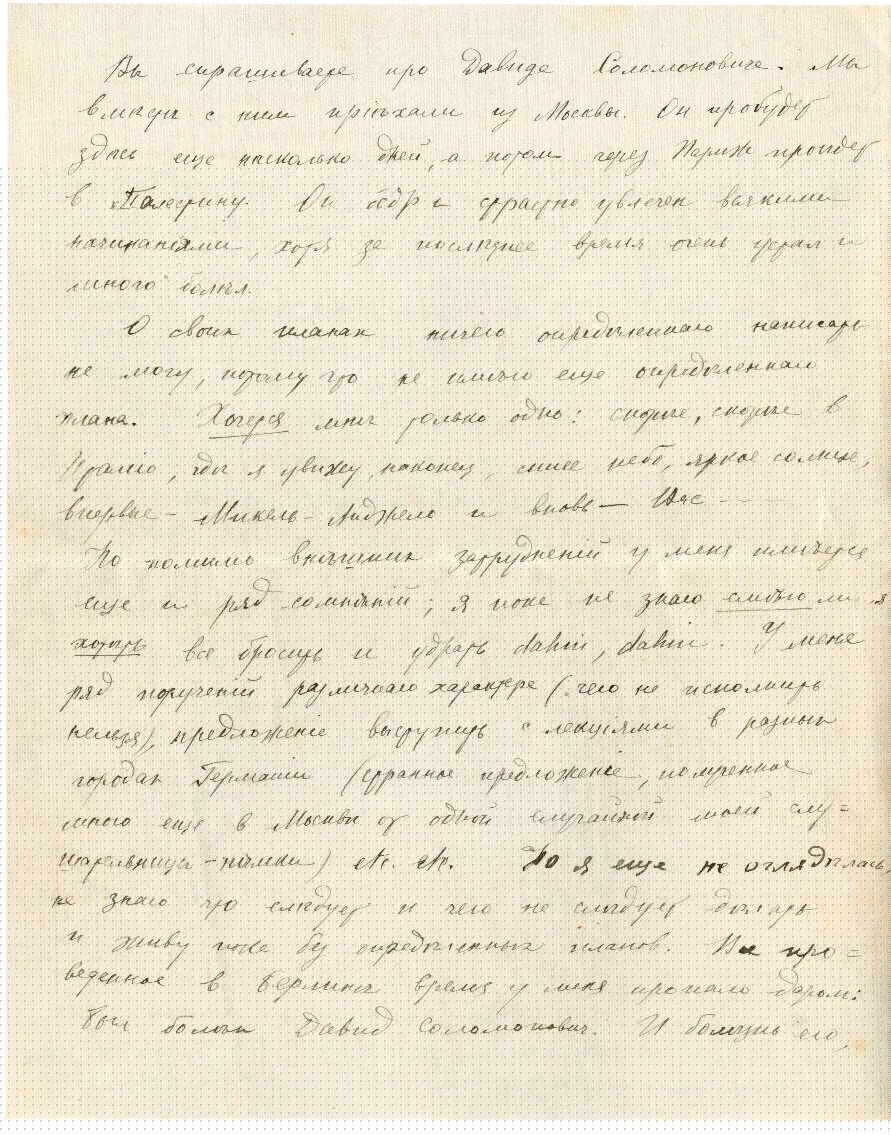 Вы спрашиваете про Давида Соломоновича. Мы
вмѣстѣ с ним пріѣхали из Москвы. Он пробудет
здѣсь еще нѣсколько дней, а потом через Париж проѣдет
в Палестину. Он бодр и страстно увлечен всякими
начинаніями, хотя за послѣднее время очень устал и
много болѣл.
О своих планах ничего опредѣленнаго написать
не могу, потому что не имѣю еще опредѣленнаго
плана. Хочется мнѣ только одно: скорѣе, скорѣе в
Италію, гдѣ я увижу, наконец, синее небо, яркое солнце,
впервые – Микель-Анджело и вновь – Вас - - -
Но помимо внѣшних затрудненій у меня имѣется
еще и ряд сомнѣній; я пока не знаю смѣю ли я
хотѣть все бросить и удрать dahin, dahin. У меня
ряд порученій различнаго характера (чего не исполнить
нельзя), предложеніе выступить с лекціями в разных
городах Германіи (странное предложеніе, полученное
мною еще в Москвѣ от одной случайной моей слу=
шательницы – нѣмки) etc. etc. Но я еще не оглядѣлась,
не знаю что слѣдует и чего не слѣдует дѣлать
и живу пока без опредѣленных планов. Все про=
веденное в Берлинѣ время у меня пропало даром:
был болен Давид Соломонович. И болѣзнь его,